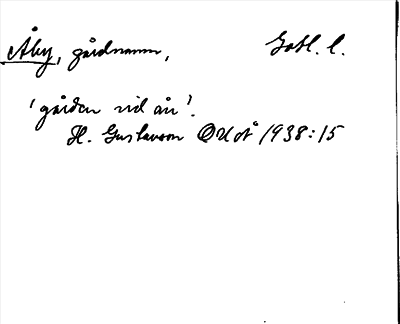 Åby, gårdnamn, Gotl. l.
'gården vid ån'.
H. Gustavson OUoÅ 1938:15